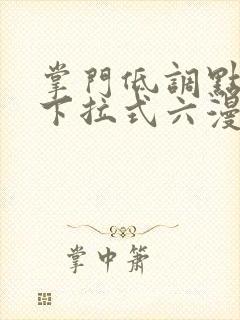 掌門低調點
下拉式六漫
掌中蕭